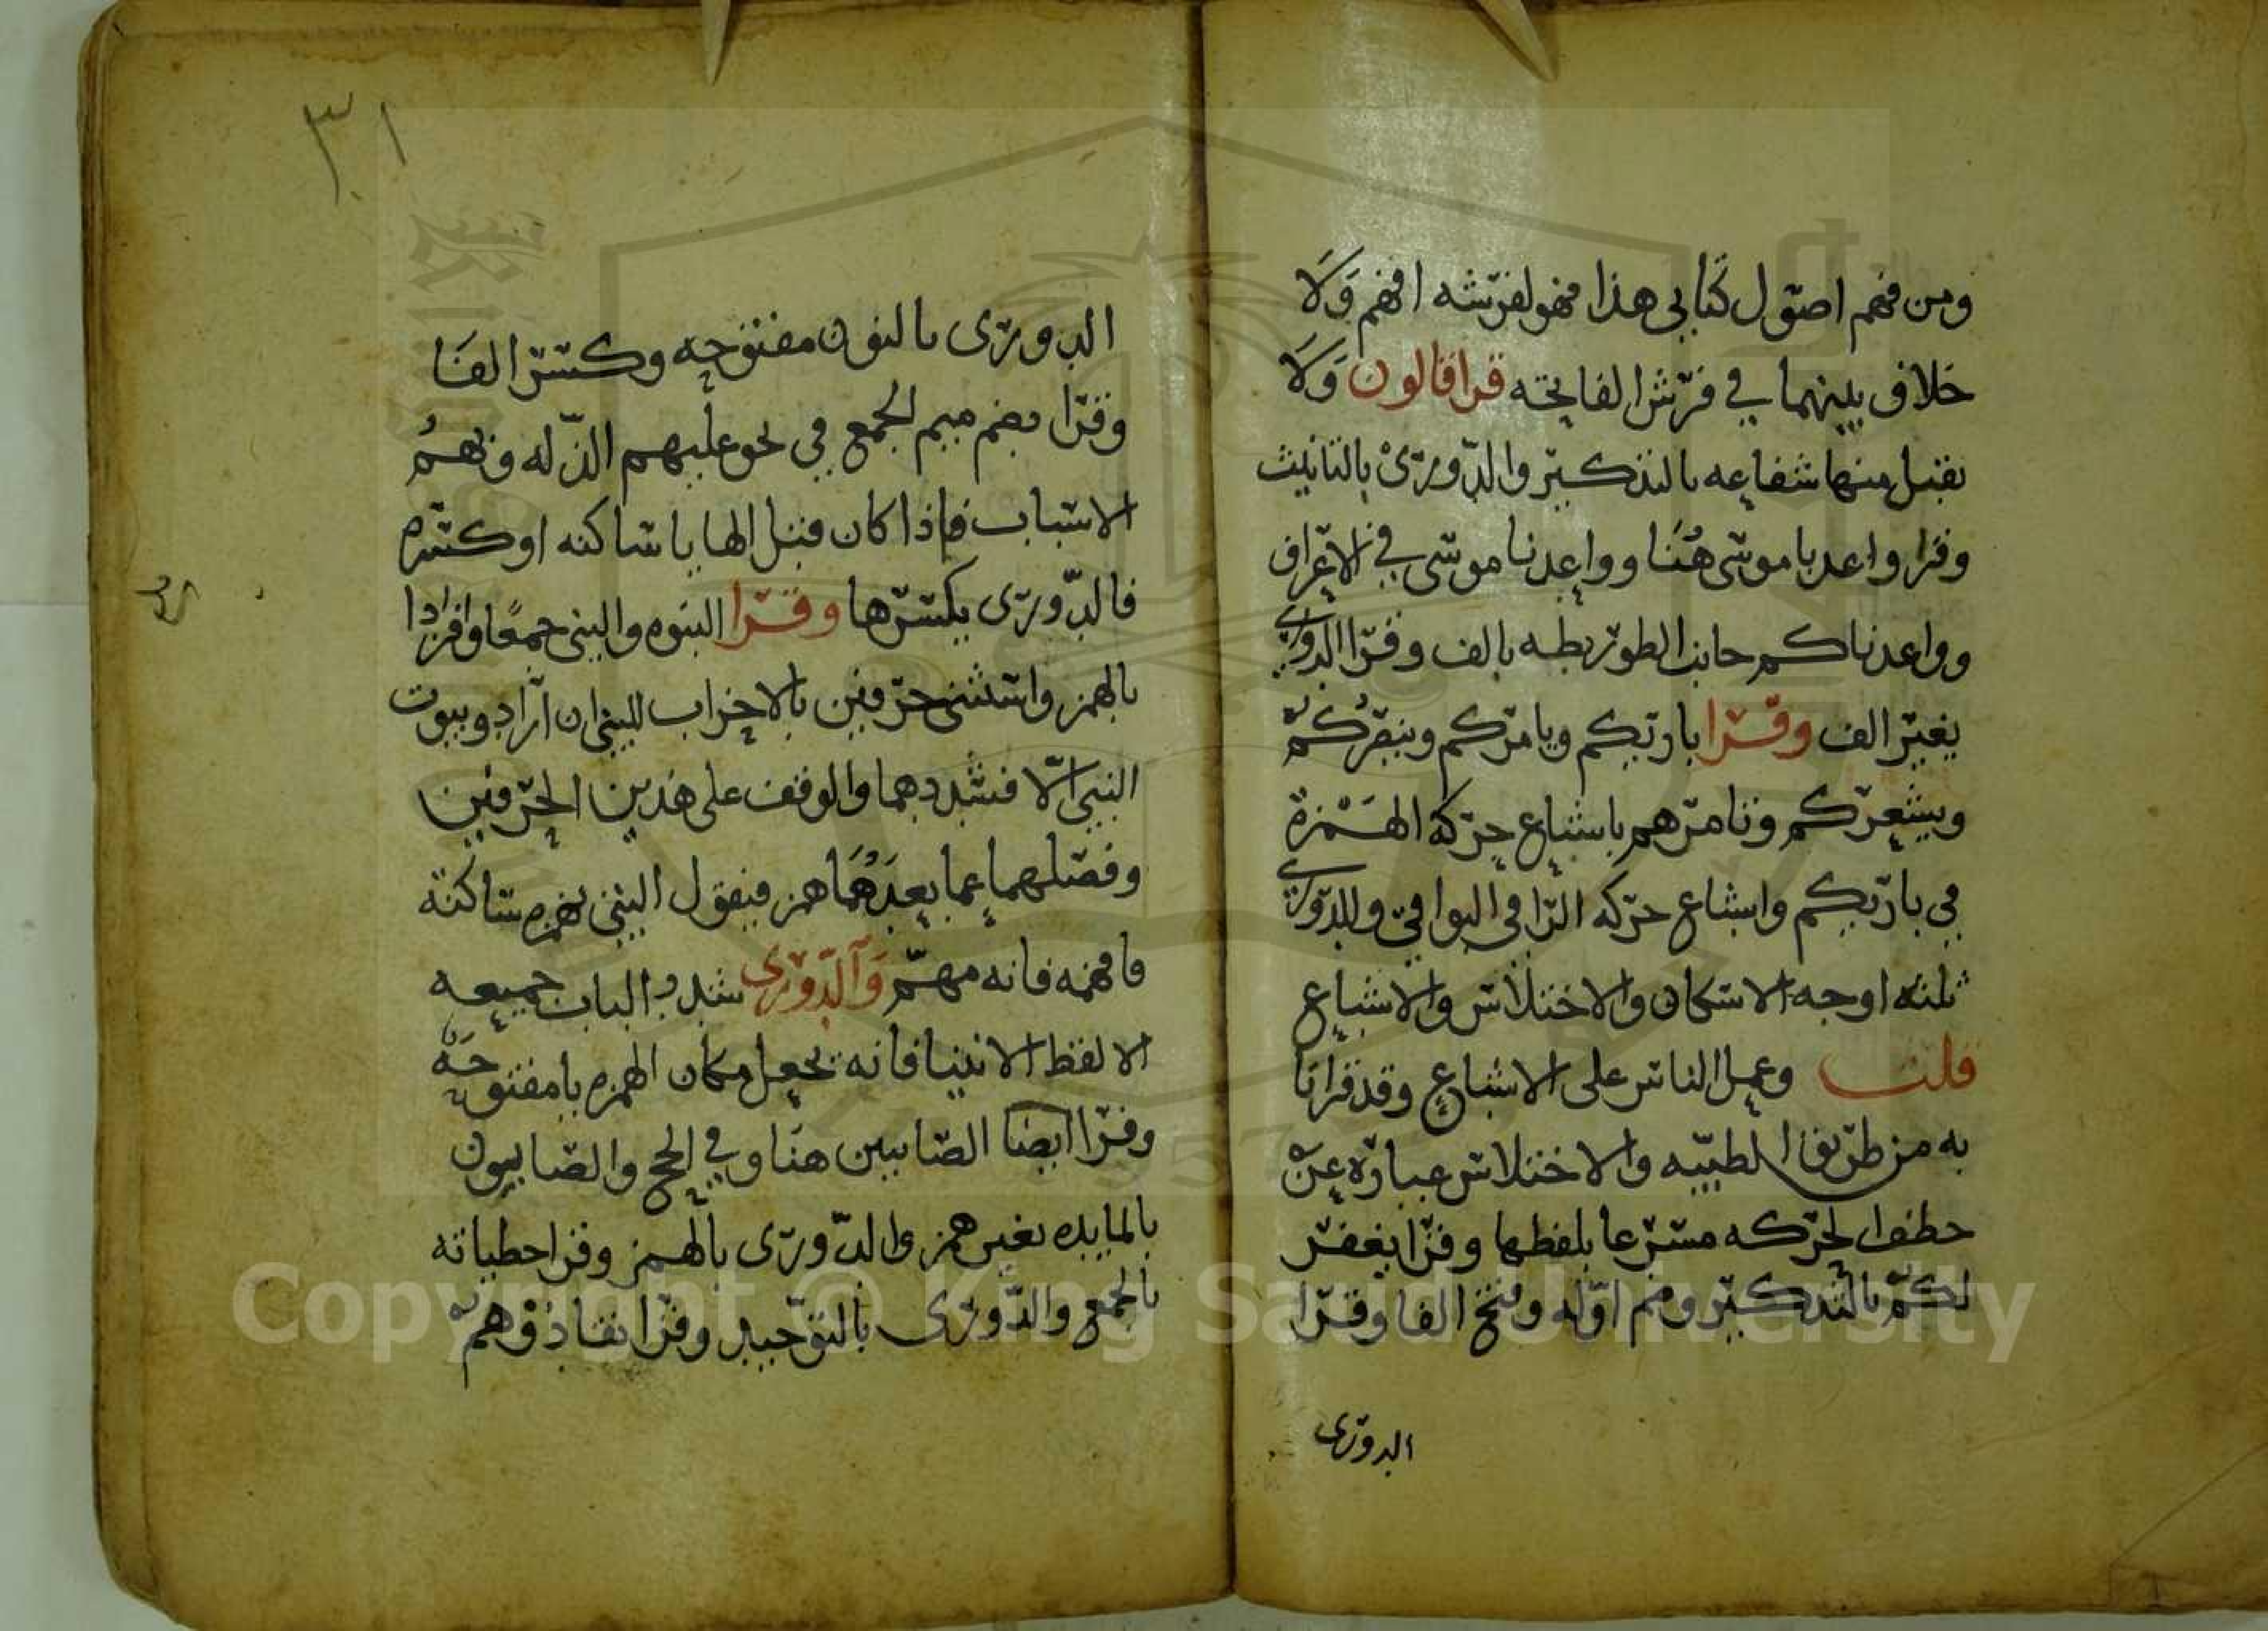 ومن فهم اصول كتابي هذا فهو لفرشه افهم ولا
خلاف بينهما في فرش الفاتحه قرا قالون ولا
يقبل منها شفاعه بالتذكير والدوري بالتانيث
وقرا واعدنا موسى هنا وواعدنا موسى في الاعراف
وواعدناكم جانب الطور بطه بالف وقرا الدوري
بغير الف وقرا بارئكم ويامركم وينصركم
ويشعركم وتامرهم باشباع حركه الهمزة
في بارئكم واشباع حركه الرا في البواقي وللدوري
ثلثه اوجه الاسكان والاختلاس والاشباع
قلت وعمل الناس على الاشباع وقد قرانا
به من طريق الطيبه والاختلاس عبارة عن
خطف الحركه مسرعا بلفظها وقرا يغفر
لكم بالتذكير وضم اوله وفتح الفا وقرا
الدوري
٣١
الدوري بالنون مفتوحه وكسر الفا
وقرا بضم ميم الجمع في نحو عليهم الذله وبهم
الاسباب فاذا كان قبل الها يا ساكنه او كسره
فالدوري يكسرها وقرا النبوه والنبي جمعا وافرادا
بالهمز واستثنى حرفين بالاحزاب للنبي ان اراد وبيوت
النبي الا فشددهما والوقف على هذين الحرفين
وفصلهما عما بعدهما همز فيقول النبي بهمزه ساكنة
فافهمه فانه مهم والدوري شدد الباب جميعه
الا لفظ الانبيا فانه يجعل مكان الهمزه يا مفتوحة
وقرا ايضا الصابين هنا وفي الحج والصابون
بالمايده بغير همز والدوري بالهمز وقرا خطياته
بالجمع والدوري بالتوحيد وقرا تفادوهم
Copyright © King Saud University
1957